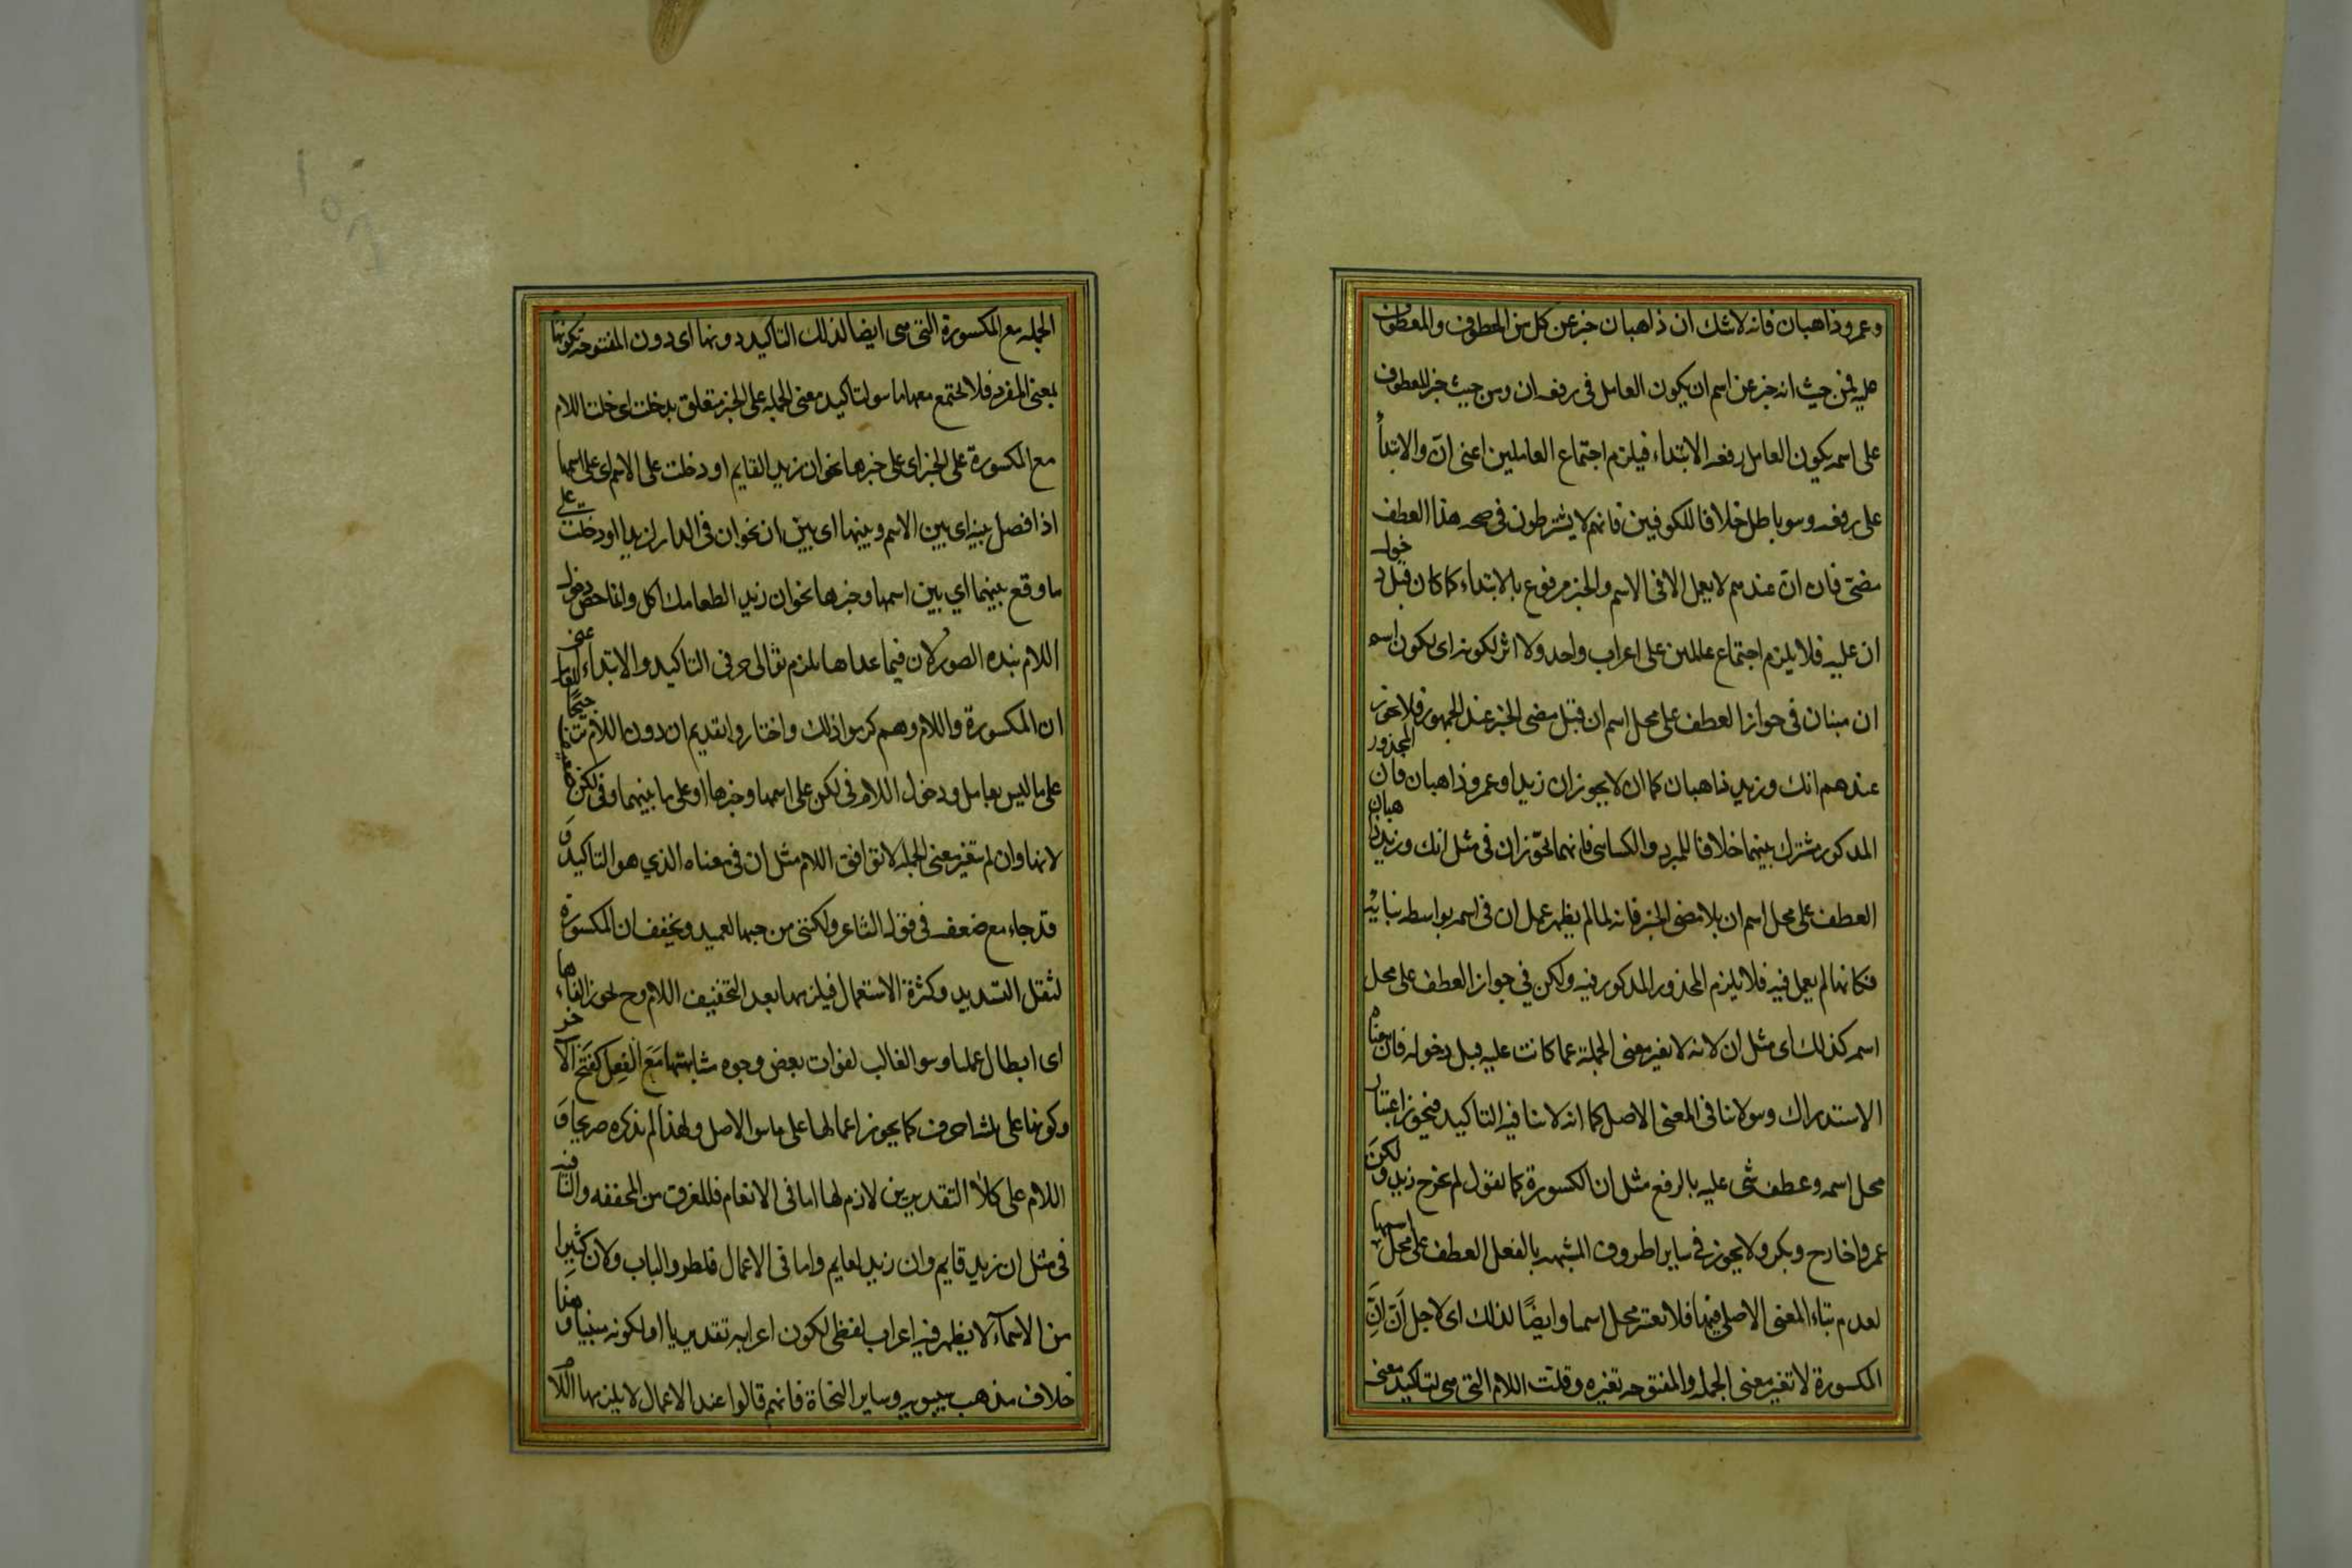 وعمرو ذاهبان فانه لاشك ان ذاهبان خبر عن كل من المعطوف والمعطوف
عليه فمن حيث انه خبر عن اسم ان يكون العامل فى رفعه ان ومن حيث خبر المعطوف
على اسمه يكون العامل رفعه الابتداء فيلزم اجتماع العاملين اعنى انّ والابتدأ
على رفعه وهو باطل خلافا للكوفيين فانهم لا يشترطون فى صحه هذا العطف
مضى فان انّ عندهم لا يعمل الا فى الاسم والخبر مرفوع بالابتداء كما كان قبل دخول
ان عليه فلا يلزم اجتماع عاملين على اعراب واحد ولا اثر لكونه اى لكون اسم
ان مبنيان فى جواز العطف على محل اسم ان قبل مضى الخبر عند الجمهور فلا يجوز
عندهم انك وزيد ذاهبان كما ان لا يجوز ان زيدا وعمرو ذاهبان فان المحذور
المذكور مشترك بينهما خلافا للمبرد والكسائى فانهما يجوّزان فى مثل انك وزيد ذاهبان
العطف على محل اسم ان بلا مضى الخبر فانه لما لم يظهر عمل ان فى اسمه بواسطه بنائه
فكانها لم يعمل فيه فلا يلزم المحذور المذكور فيه ولكن في جواز العطف على محل
اسمه كذلك اى مثل ان لانه لا يغير معنى الجملة عما كانت عليه قبل دخوله فان معناه
الاستدراك وهو لا ينافى المعنى الاصل كما انه لا ينافيه التاكيد فيجوز اعتبار
محل اسمه وعطف شى عليه بالرفع مثل ان المكسورة كما تقول لم يخرج زيد ولكنّ
عمروا خارج وبكر ولا يجوز فى ساير الحروف المشبهه بالفعل العطف على محل اسمها
لعدم بقاء المعنى الاصلى فيها فلا يعتبر محل اسمها وايضًا لذلك اى لاجل انّ انّ
المكسورة لا تغير معنى الجمله والمفتوحه تغيره دخلت اللام التى هى لتاكيد معنى
الجمله مع المكسورة التى هى ايضا لذلك التاكيد دونها اى دون المفتوحه لكونها
بمعنى المفرد فلا يجتمع معها ما هو لتاكيد معنى الجمله على الخبر متعلق بدخلت اى دخلت اللام
مع المكسورة على الخبر اى على خبرها نحو ان زيد القايم او دخلت على الاسم اى على اسمها
اذا فصل بينه اى بين الاسم وبينها اى بين ان نحو ان فى الدار لزيدا او دخلت على
ما وقع بينهما اي بين اسمها وخبرها نحو ان زيد الطعامك اكل وانما خص دخول
اللام بهذه الصور لان فيما عداها يلزم توالى حرفى التاكيد والابتداء اعنى
ان المكسورة واللام وهم كرهوا ذلك واختاروا تقديم ان دون اللام ترجيحا
على ما ليس بعامل ودخول اللام فى لكن على اسمها وخبرها او على ما بينهما وفى لكن ضعيف
لانها وان لم تغير معنى الجمله لا توافق اللام مثل ان فى معناه الذي هو التاكيد وَ
قد جاء مع ضعفه فى قول الشاعر ولكننى من حبها لعميد ويخفف ان المكسورة
لثقل التشديد وكثرة الاستعمال فيلزمها بعد التخفيف اللام وح يجوز الغاءها
اى ابطال عملها وهو الغالب لفوات بعض وجوه مشابهتها مَعَ الفِعل كَفَتح الآخر
وكونها على ثلثه احرف كما يجوز اعمالها على ما هو الاصل ولهذا لم يذكره صريحا وَ
اللام على كلا التقديرين لازم لها اما فى الالغام فللفرق من المخففه والنافيه
فى مثل ان زيد قايم وان زيد لقايم واما فى الاعمال فلطرد الباب ولان كثيرا
من الاسماء لا يظهر فيه اعراب لفظى لكون اعرابه تقديريا او لكونه مبنيا وهذا
خلاف مذهب سيبويه وساير النحاة فانهم قالوا عند الاعمال لا يلزمها اللام